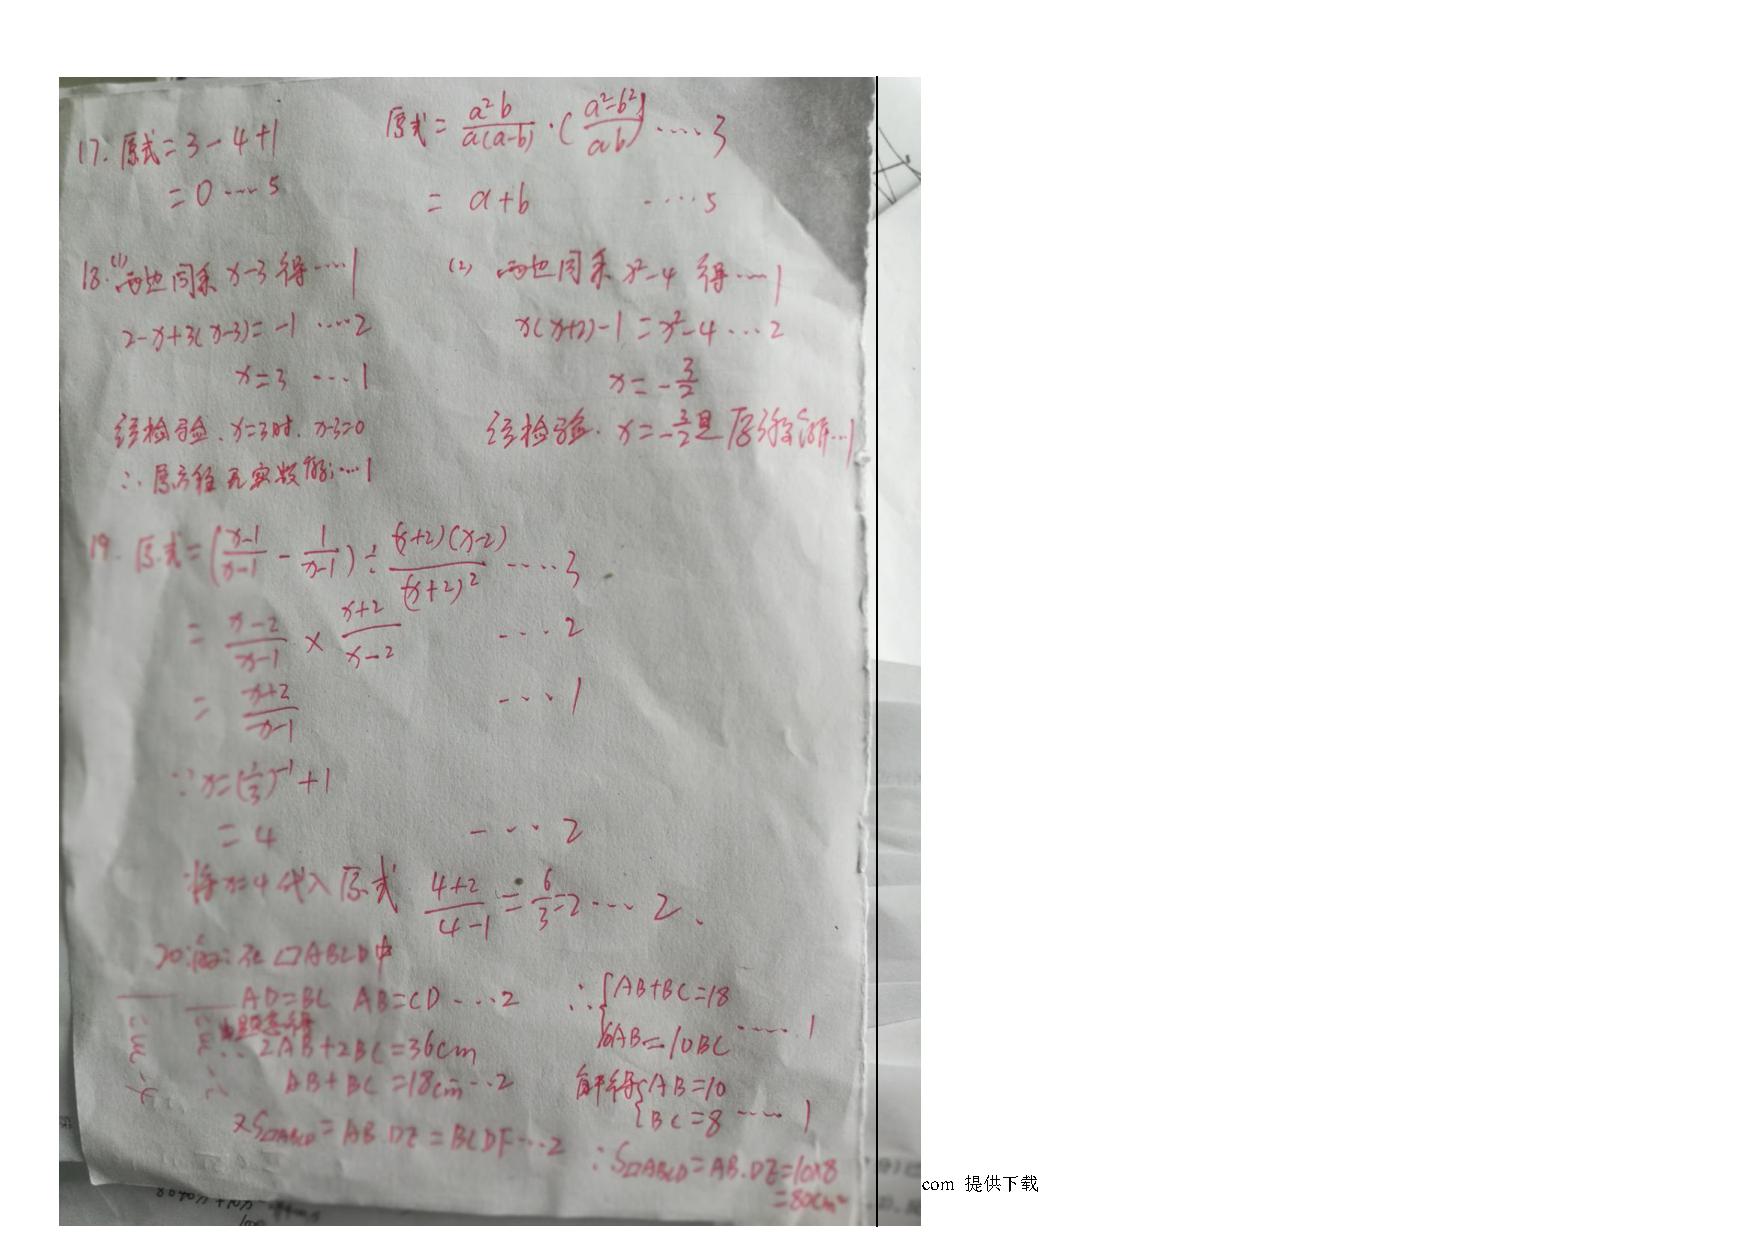 17. 原式=3-4+1
=0 ····5
原式= a²b/a(a-b) · (a²-b²/ab) ····3
= a+b ····5
18.(1) 两边同乘 x-3 得····1
2-x+3(x-3)=-1 ····2
x=3 ····1
经检验. x=3时. x-3=0
∴原方程无实数解; ····1
(2) 两边同乘 x²-4 得····1
x(x+2)-1=x²-4 ···2
x=-3/2
经检验. x=-3/2是原方程的解···1
19. 原式=(x-1/x-1 - 1/x-1)÷(x+2)(x-2)/(x+2)² ····3
= x-2/x-1 × x+2/x-2 ····2
= x+2/x-1 ···1
∵x=(1/3)⁻¹+1
=4 ····2
将x=4代入原式 4+2/4-1=6/3=2 ···2、
20.解:在▱ABCD中
AD=BC AB=CD ···2
由题意得
∴2AB+2BC=36cm
AB+BC=18cm ··2
又S▱ABCD=AB·DE=BC·DF ···2
∴{AB+BC=18
AB=10BC ·····1
解得{AB=10
BC=8 ····1
∴S▱ABCD=AB·DE=10×8
=80cm²
com 提供下载